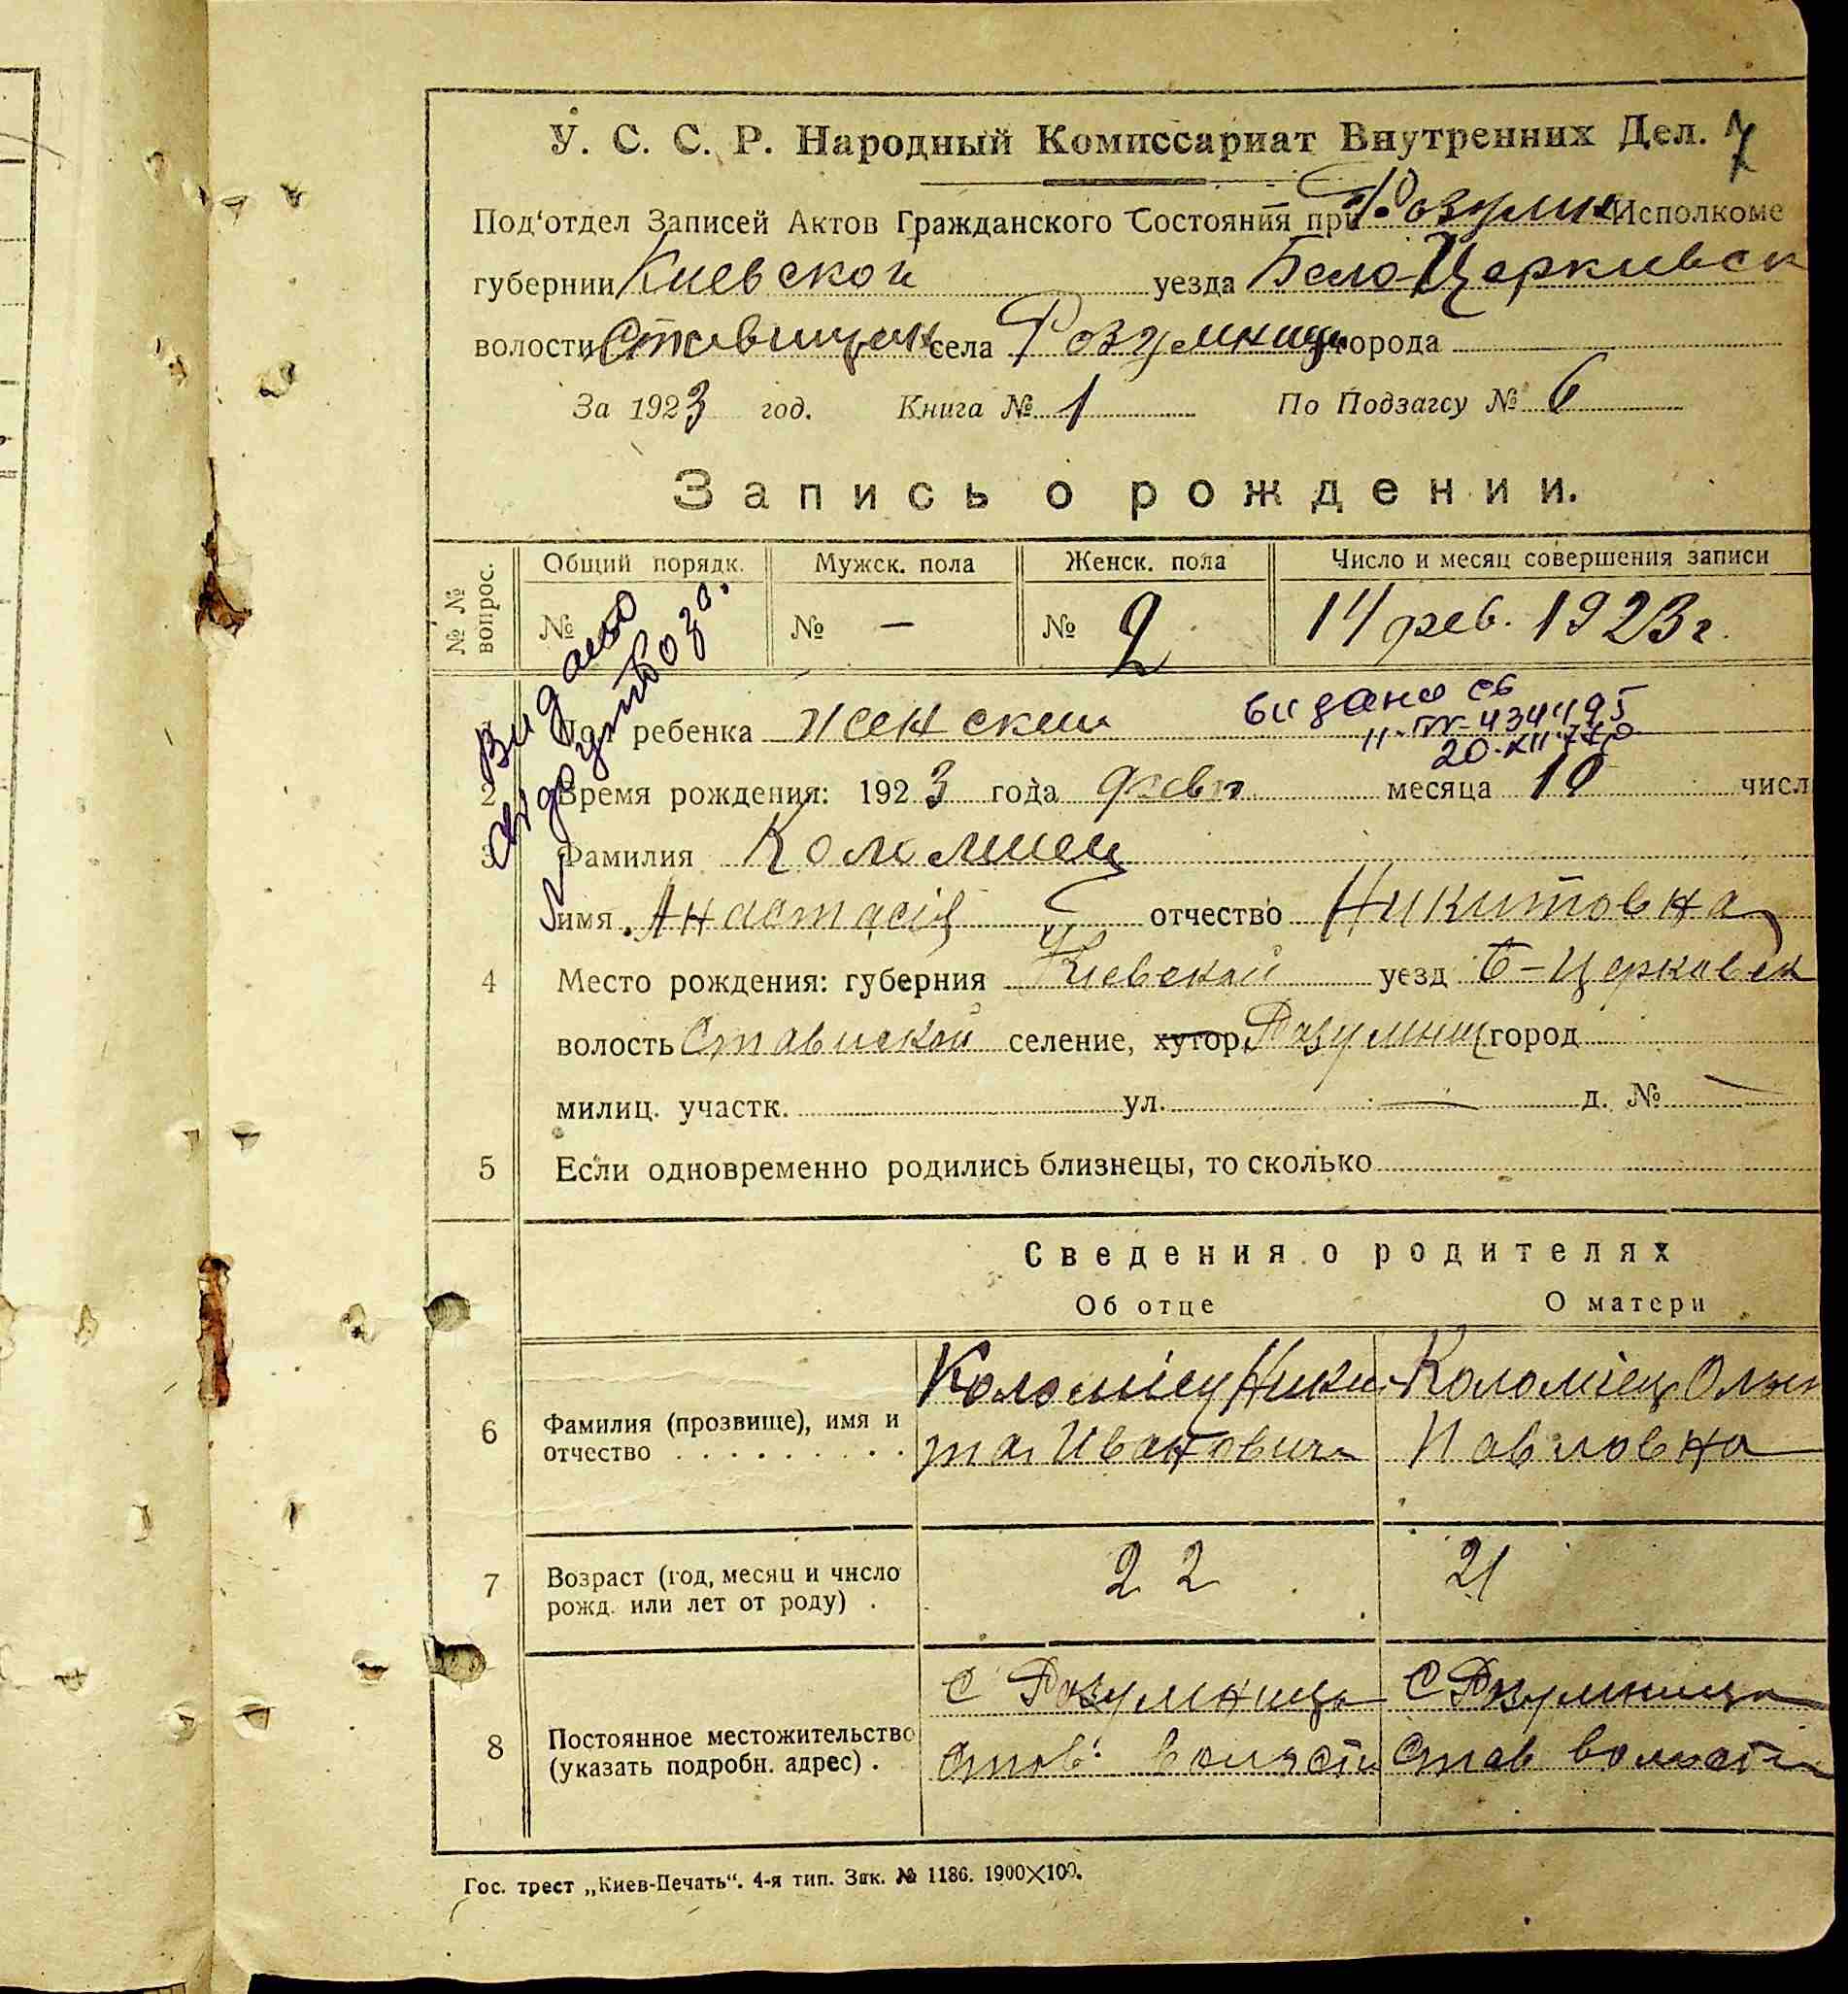 У. С. С. Р. Народный Комиссариат Внутренних Дел. 7
Под‘отдел Записей Актов Гражданского Состояния при Розумн Исполкоме
губернии Киевской уезда Бело-Церкивск
волости Ставищан села Розумниць города
За 1923 год. Книга № 1 По Подзагсу № 6
Запись о рождении.
№ № вопрос.
Общий порядк. Мужск. пола Женск. пола Число и месяц совершения записи
№ № — № 2 14 фев. 1923 г.
Видано
ребенка женский
видано св
20.XII.77р
2 Время рождения: 1923 года февр месяца 10 числ
3 Фамилия Коломиец
имя Анастасія отчество Никитовна
4 Место рождения: губерния Киевской уезд Б-Церковск
волость Ставиской селение, хутор, Розумниц город
милиц. участк. ул. — д. № —
5 Если одновременно родились близнецы, то сколько
Сведения о родителях
Об отце О матери
6 Фамилия (прозвище), имя и отчество
Коломіец Ники-
та Иванович
Коломіец Ольга
Павловна
7 Возраст (год, месяц и число рожд. или лет от роду) .
22 21
8 Постоянное местожительство (указать подробн. адрес) .
С Розумниць
Став. волости
С Розумниця
Став волости
Гос. трест „Киев-Печать“. 4-я тип. Зак. № 1186. 1900×100.